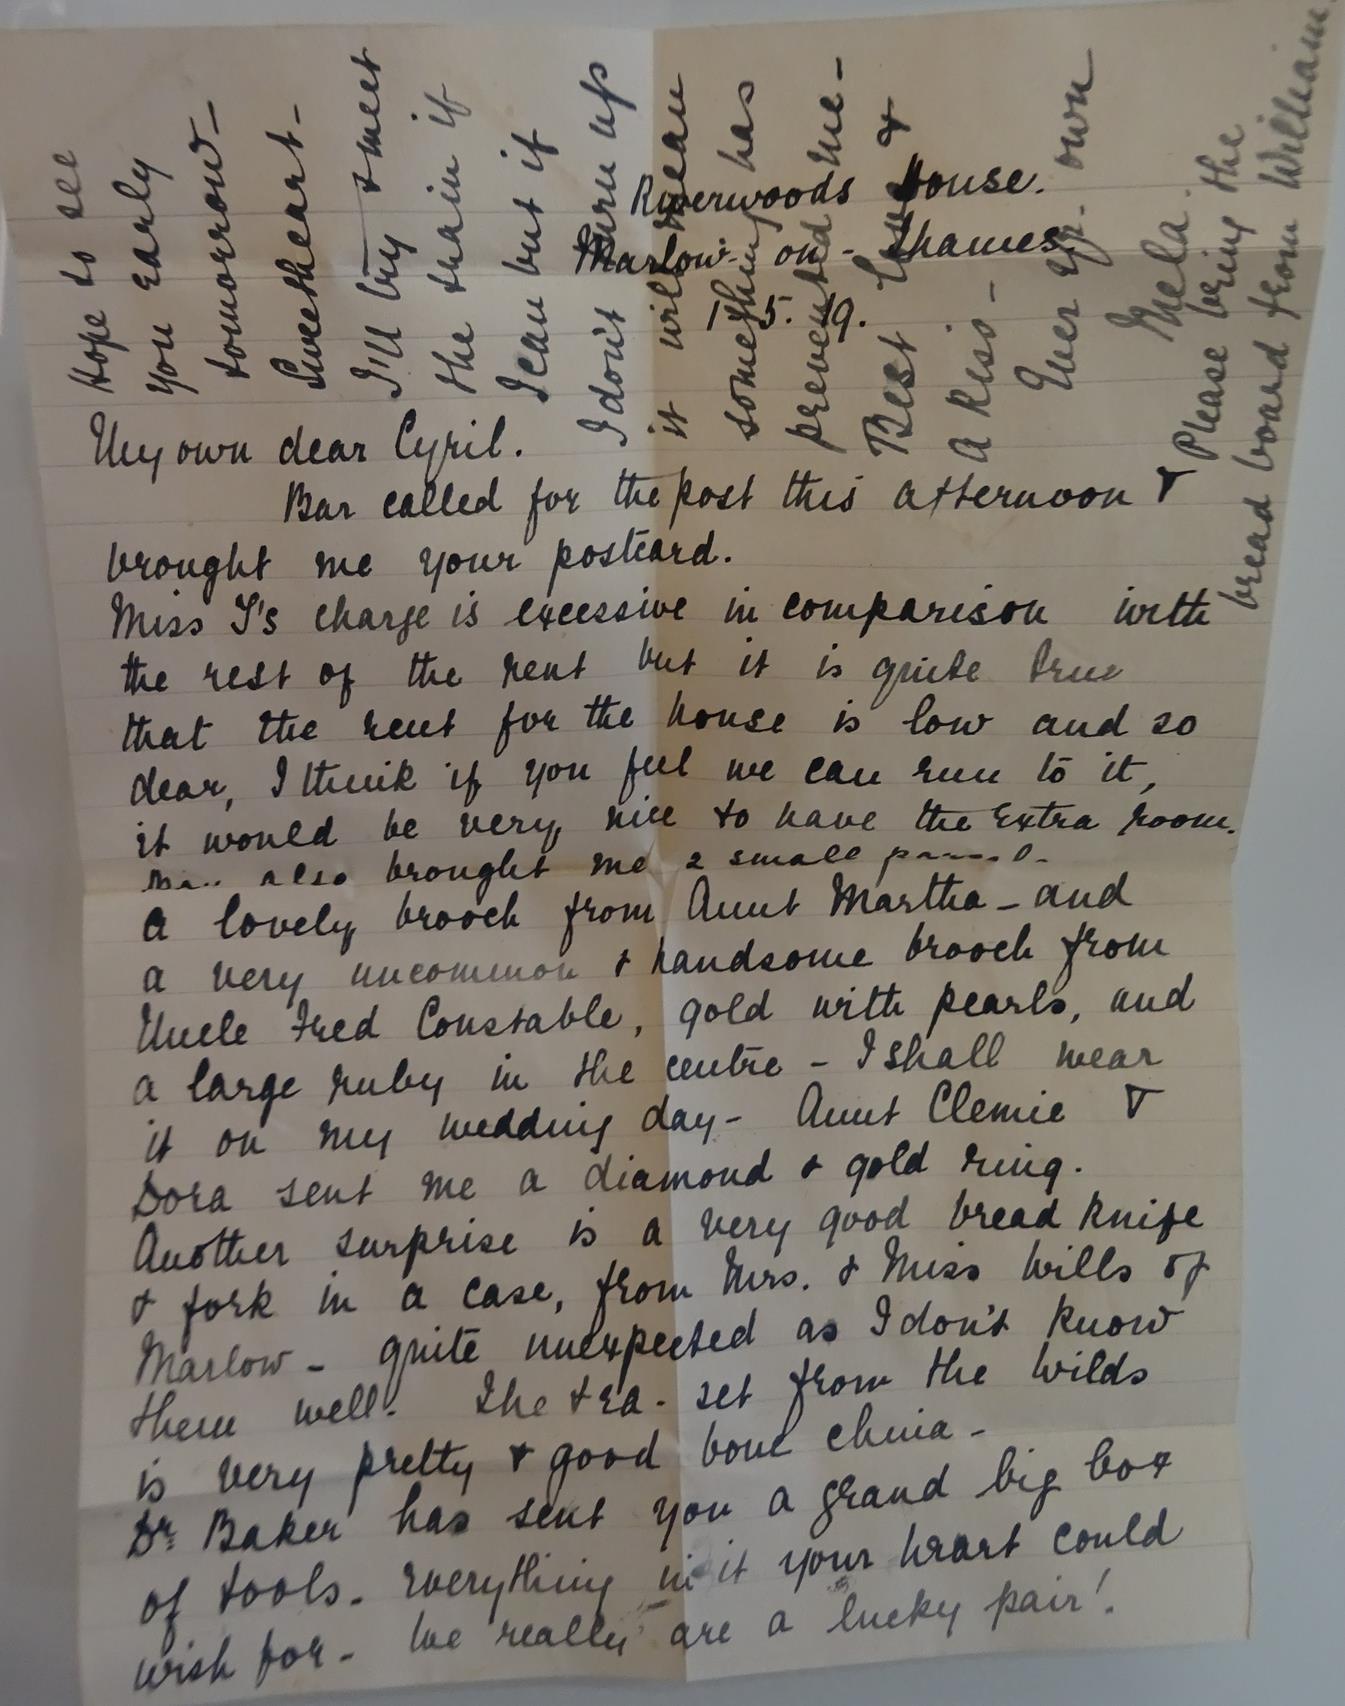 Riverwoods House.
Marlow - on - Thames.
1. 5. 19.
My own dear Cyril.
Bar called for the post this afternoon &
brought me your postcard.
Miss I's charge is excessive in comparison with
the rest of the rent but it is quite true
that the rent for the house is low and so
dear, I think if you feel we can run to it,
it would be very nice to have the extra room.
also brought me 2 small
a lovely brooch from Aunt Martha - and
a very uncommon & handsome brooch from
Uncle Fred Constable, gold with pearls, and
a large ruby in the centre - I shall wear
it on my wedding day - Aunt Clemie &
Dora sent me a diamond & gold ring.
Another surprise is a very good bread knife
& fork in a case, from Mrs. & Miss Wills of
Marlow - quite unexpected as I don't know
them well. The tea-set from the Wilds
is very pretty & good bone china -
Dr. Baker has sent you a grand big box
of tools. Everything in it your heart could
wish for - We really are a lucky pair!
Hope to see
you early
tomorrow -
Sweetheart -
I'll try & meet
the train if
I can but if
I don't turn up
it will mean
something has
prevented me -
Best love &
a kiss -
Ever yr. own
Mela.
Please bring the
bread board from William.